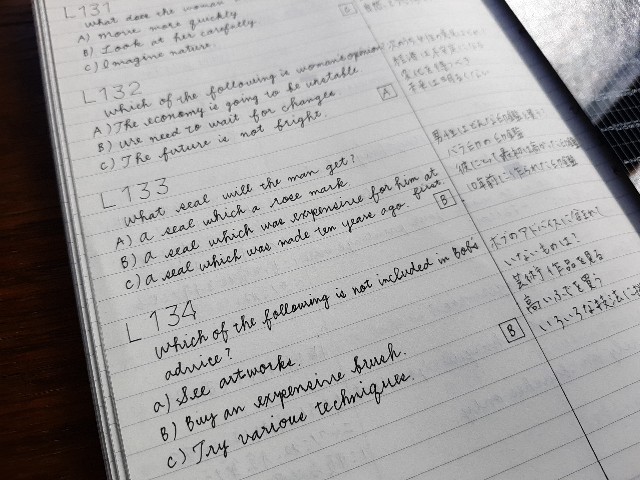 L131
What does the woman
A) Move more quickly
B) Look at her carefully.
C) Imagine nature.
A
L132
Which of the following is woman's opinion
A) The economy is going to be unstable
B) We need to wait for changes
C) The future is not bright.
A
変化を待つべき
未来は明るくない
L133
What seal will the man get?
A) A seal which a rose mark.
B) A seal which was expensive for him at first
C) A seal which was made ten years ago
B
男性はどんな印鑑を
バラ印の印鑑
10年前に作られた印鑑
L134
Which of the following is not included in Bobs
advice?
a) See artworks.
B) Buy an expensive brush.
C) Try various techniques.
B
ボブのアドバイスに含まれて
いないものは?
芸術作品を見る
高いふでを買う
いろいろな技法に